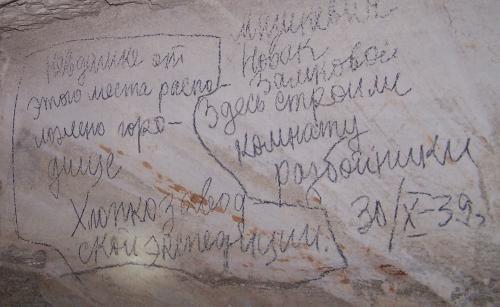 Невдалике от
этого места распо-
ложено горо-
дище
Хлопкозавод
ской экспедиции.
Новак
Здесь строили
комнату
разбойники
30/IX-39г.